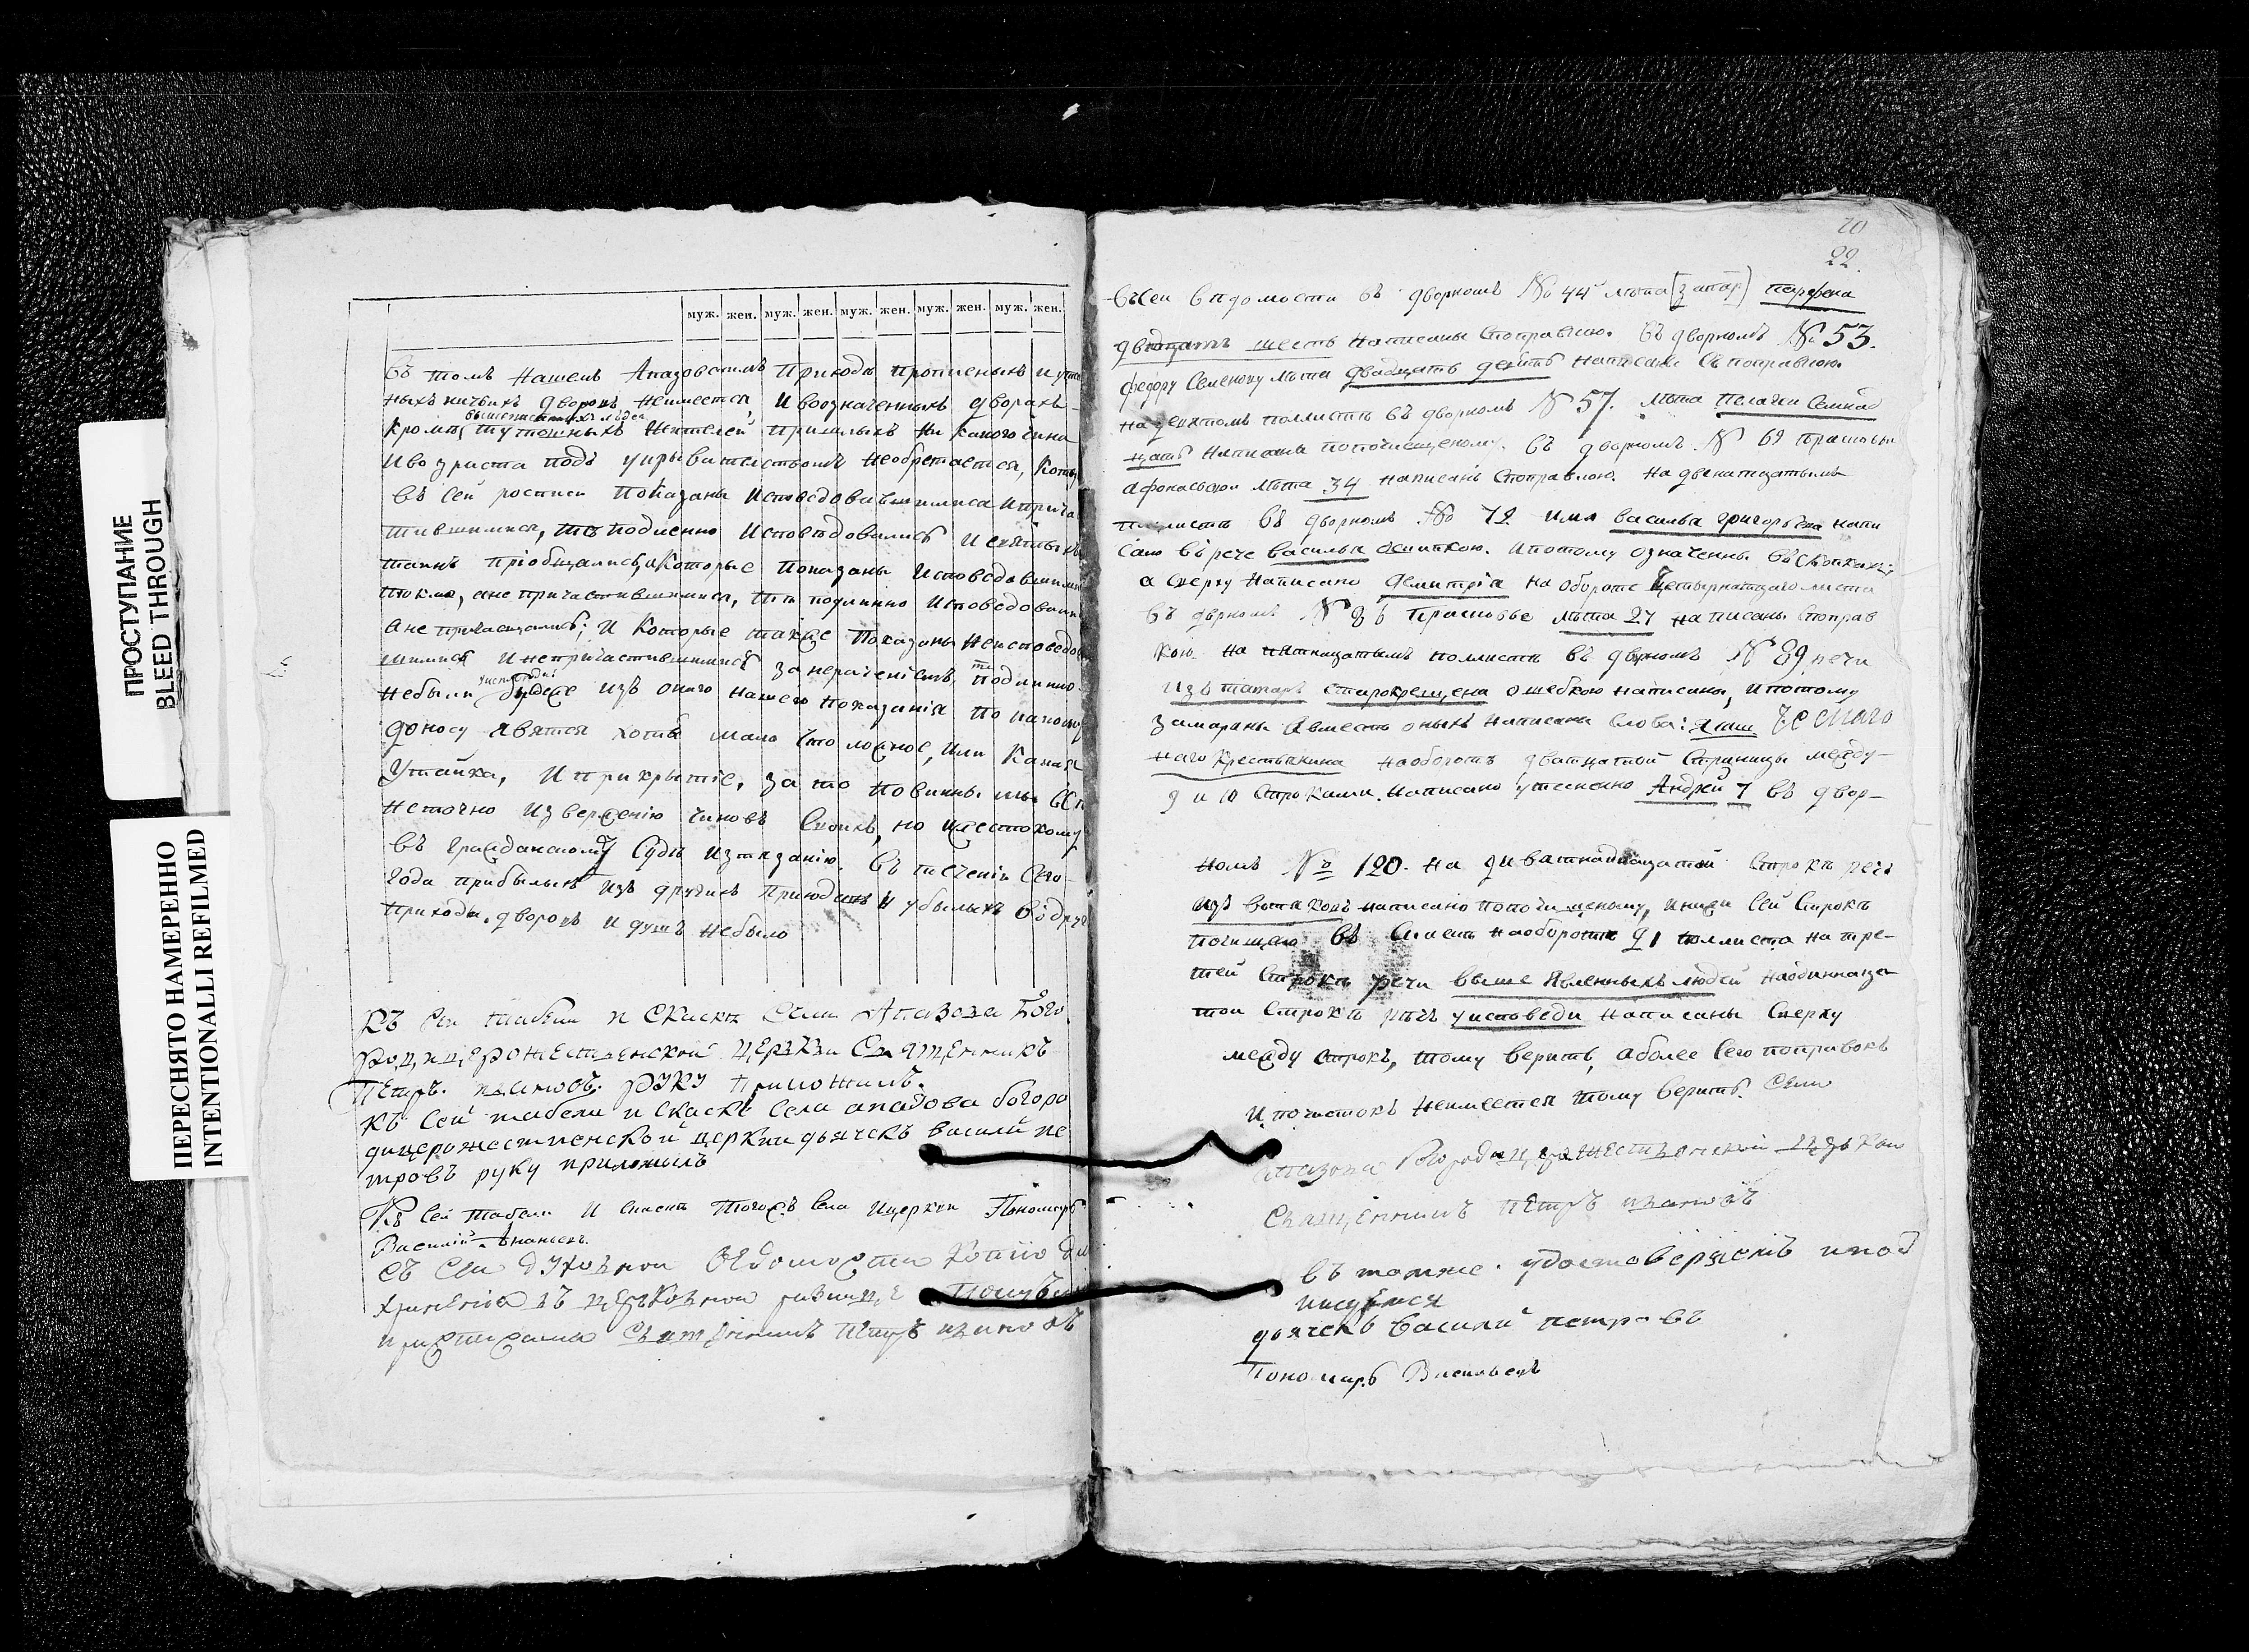 ПРОСТУПАНИЕ
BLEED THROUGH
ПЕРЕСНЯТО НАМЕРЕННО
INTENTIONALLI REFILMED
муж. жен. муж. жен. муж. жен. муж. жен. муж. жен.
Въ томъ нашемъ приходѣ
дворовъ неимеется, и воозначенныхъ дворахъ
вышеписанныхъ людей
Кромѣ жителей пришлыхъ ни какого чина
и возраста подъ укрывательствомъ необретается,
въ сей росписи показаны исповедовавшимися и прича
тившимися, тѣ подленно исповѣдовались и святыхъ
таинъ пріобщались, а которые показаны исповедовавшими
токмо, а не причастившимися, тѣ подлинно исповедовали
а не причащались; и которые также показаны неисповедо
шимися и непричастившимися за нераченіемъ, тѣ подлинно
уисповеди
небыли буде же изъ онаго нашего показанія по какому
доносу явится хотя мало что ложное, или какая
утайка, и прикрытіе, за то повинны мы
неточно изверженію чиновъ своихъ, но жестокому
въ гражданскомъ судѣ изтязанію. въ теченіи сего
года прибылыхъ изъ другихъ приходовъ и убылыхъ въ дру
приходы дворовъ и душъ небыло
Къ сей табели и скаски села Бого
родицерожественской церкви священникъ
Петръ ивановъ руку приложилъ.
къ сей табели и скаскѣ села богоро
дицерожественской церкви дьячекъ василей пе
тровъ руку приложилъ
Къ сей табели и скаски тогожъ села и церкви Пономарь
Василий
съ сей духовной ведомости копию
хранения въ церковной ризнице
священникъ Петръ ивановъ
20
22.
въ сей ведомости въ дворномъ № 44 лѣта парфена
двадцать шесть написаны споправкою. въ дворномъ № 53.
федору семенову лѣта двадцать девять написаны съ поправкою
на девятомъ полисте въ дворномъ № 57. лѣта Пелагеи семнад
цать написаны попочищеному. въ дворномъ № 69 прасковьи
афонасьевой лѣта 34 написаны споправкою. на двенатцатымъ
полисте въ дворномъ № 72 имя василья григорьева напи
сано въ рече василья ошипкою. и потому означенны въ скопкахъ
а сверху написано димитрія на обороте четырнатцаго листа
въ дворномъ № 86 прасковье лѣта 27 написаны споправ
кою на пятнацатымъ полисте въ дворномъ № 89 речи
изъ татаръ старокрещена ошебкою написаны, и потому
замараны а вместо оныхъ написаны слова:
наго крестьянина на оборотѣ дватцатой страницы между
9 и 10 строками написано утеснено Андрей 7 въ двор-
номъ № 120. на строкѣ речь
изъ вотяковъ написано попочищеному, и ниже сей строкѣ
почищено въ смете на оборотѣ 21 полиста на тре-
тей строкѣ речи выше явленныхъ людей на одиннаца
той строкѣ речь уисповеди написаны сверху
между строкъ, тому верить, а более сего поправокъ
и почистокъ неимеется тому верить. села
Богородицерожественской церкви
священникъ Петръ ивановъ
въ томже удостоверяемъ и под
писуемся
дьячекъ Василий петровъ
Пономарь Васильевъ